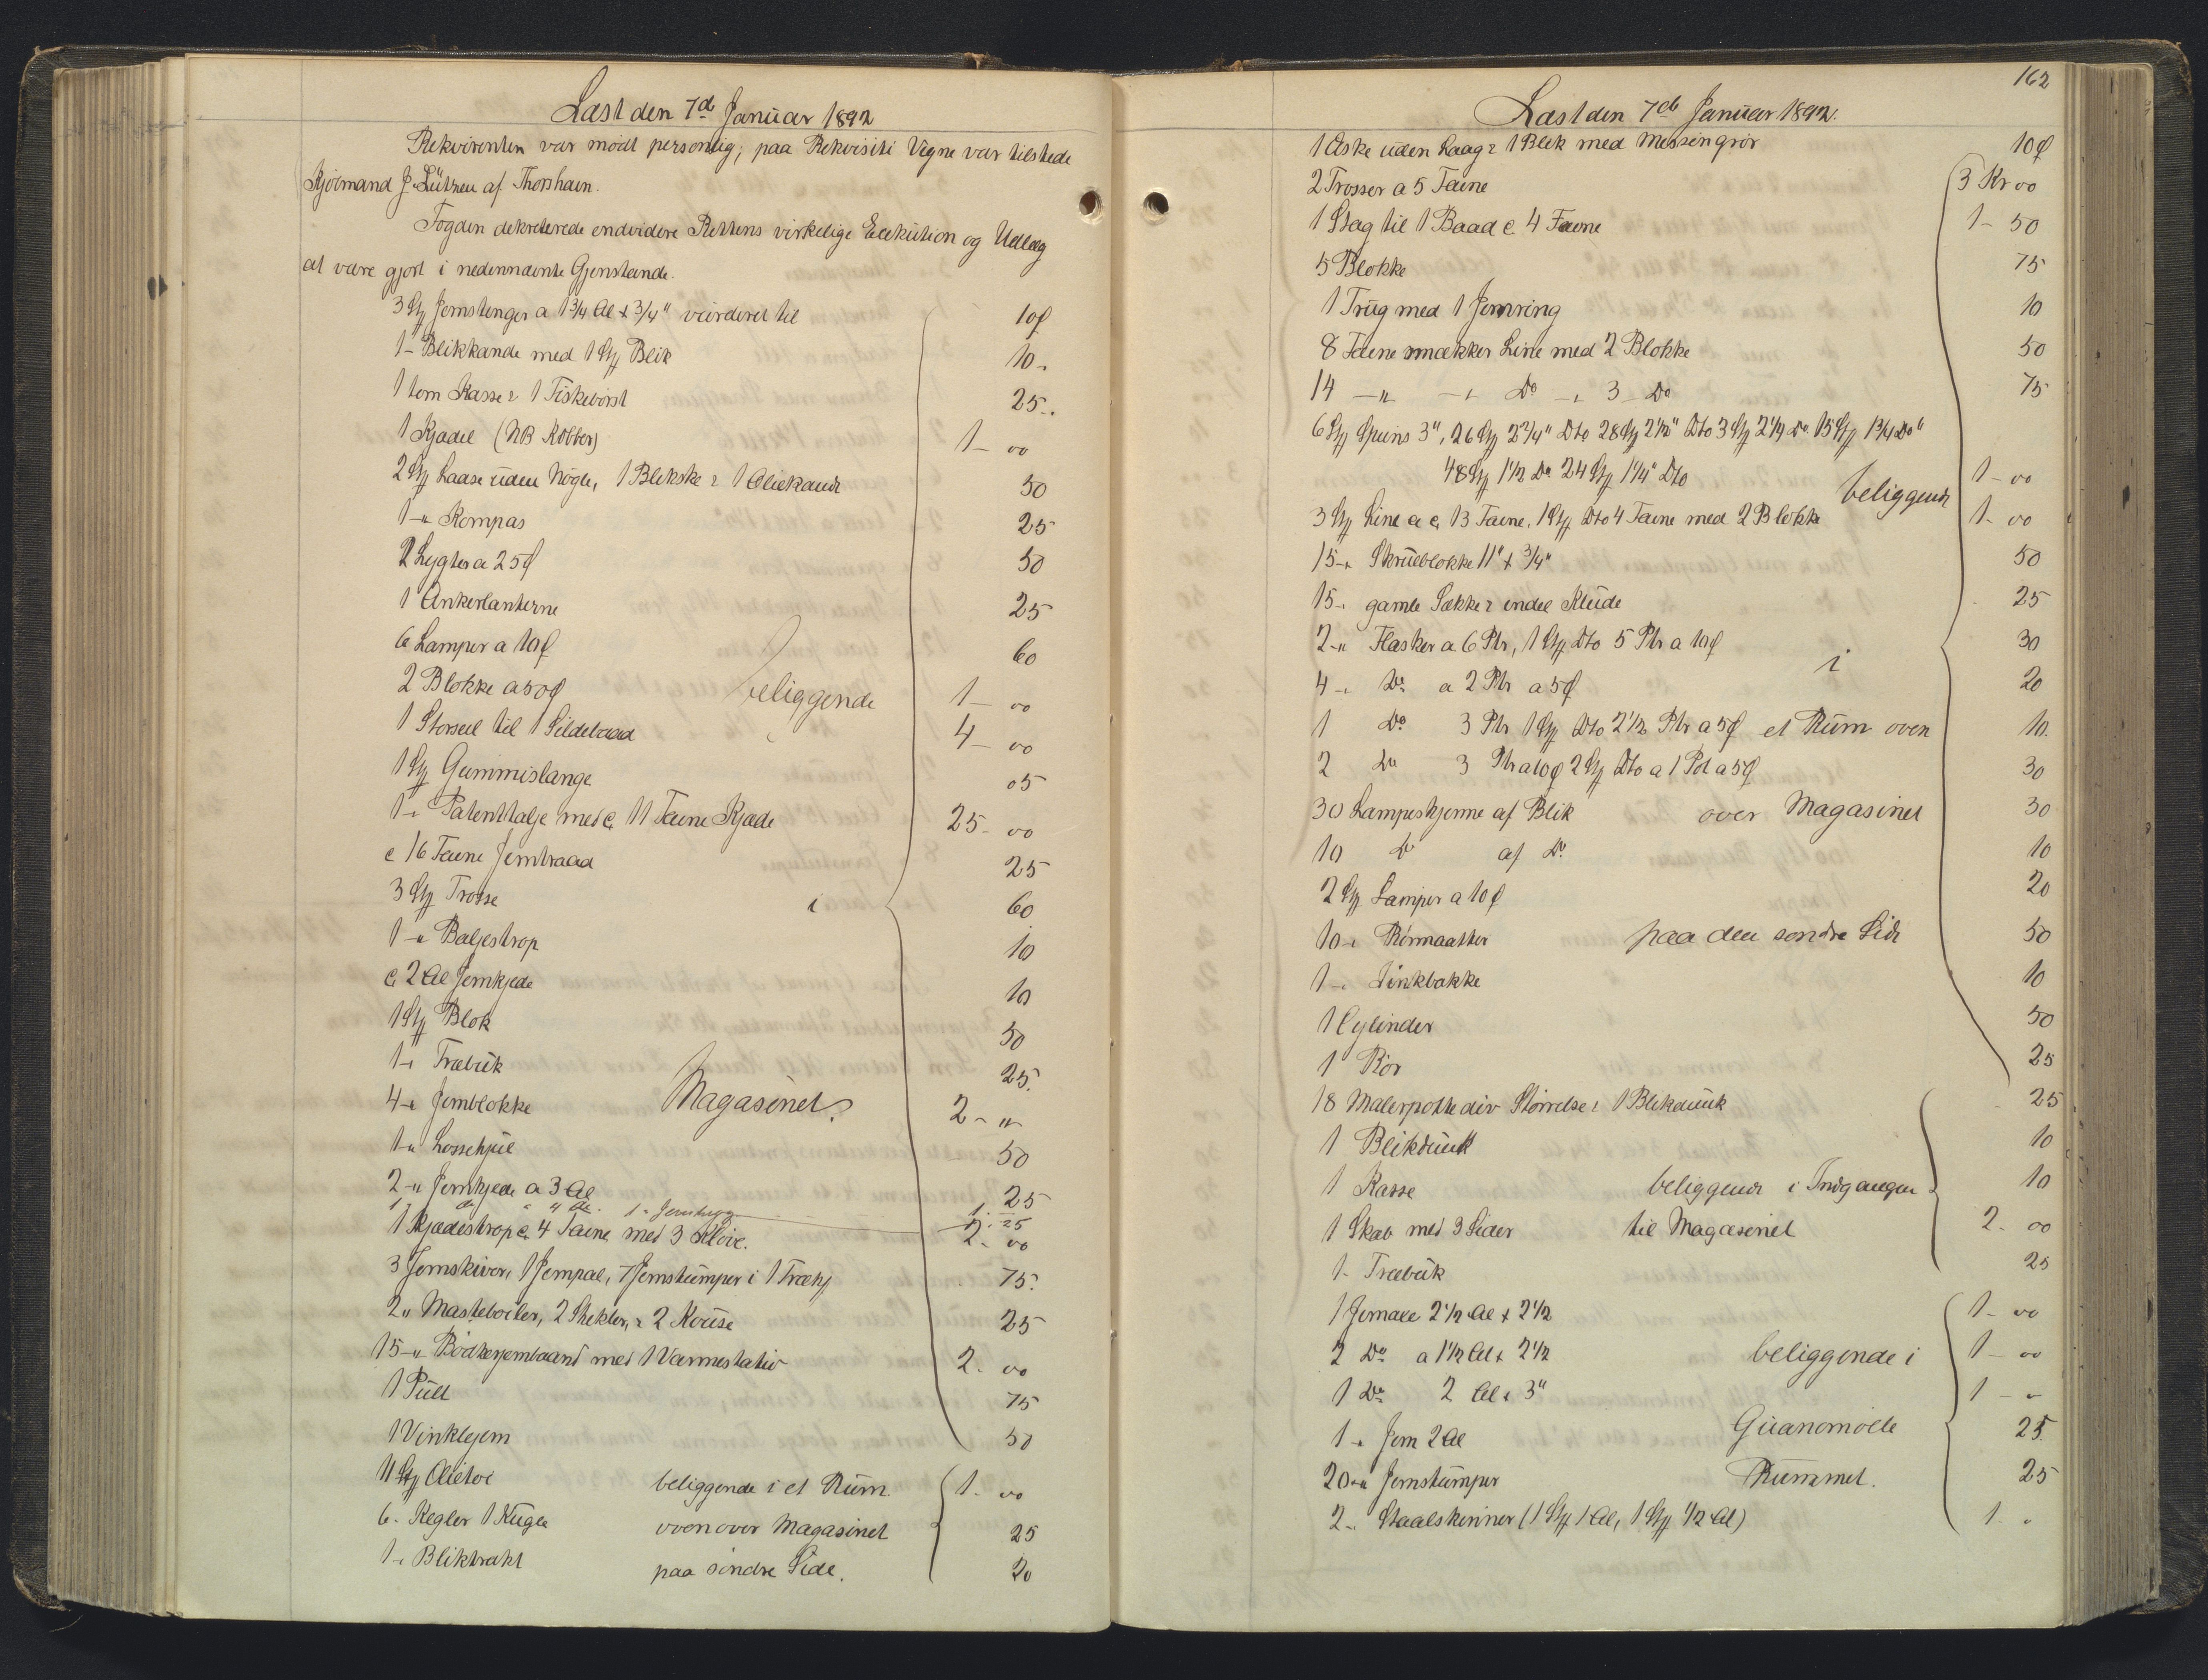 Læst den 7d Januar 1892
Rekvirenten var mödt personlig; paa Rekvisiti Vegne var tilstede
Kjöbmand J. Lützen af Thorshavn.
Fogden dekreterede endvidere Rettens virkelige Exekution og Udlæg
at være gjort i nedennævnte Gjenstande.
3 Stk Jernstenger a 1 3/4 Al + 3/4" vurderet til 10 Ø
1 - Blikkande med 1 Stk Blik 10 "
1 tom Kasse & 1 Fiskebörst 25 "
1 Kjedel (NB Kobber) 1 - 00
2 Stk Laase uden Nögle, 1 Blikske & 1 Oliekande 50
1 - " Kompas 25
2 Lygter a 25 Ø 50
1 Ankerlanterne 25
6 Lamper a 10 Ø 60
2 Blokke a 50 Ø beliggende 1 - 00
1 Storseil til 1 Sildebaad 4 - 00
1 Stk Gummislange 05
1 - " Patenttalje med c. 11 Favne Kjæde 25 - 00
c 16 Favne Jerntraad 25
3 Stk Trosse i 60
1 - " Baljestrop 10
c. 2 Al Jernkjede 10
1 Stk Blok 50
1 - " Træbuk 25.
4 - " Jernblokke Magasinet. 2 - "
1 - " Lossehjul 50
2 - " Jernkjede a 3 Al 25
1 - 25
1 Kjædestrop c. 4 Favne med 3 Klöve. 2 - 00
3 Jernskiver, 1 Jernpal, 7 Jernstumper i 1 75.
2 " Masteboiler, 2 Shekler, & 2 Kouse 25
15 - " Bödkerjernbaand med 1 Varmestativ 2 - 00
1 Pult 75
1 Vinkljern 50
11 Stk beliggende i et Rum. 1 - 00
6 - Kegler 1 Kugle ovenover Magasinet 25
1 - " Bliktrakt paa söndre Side. 20
162
Læst den 7d Januar 1892.
1 Æske uden Laag & 1 Blik med Messingrör 10 Ø
2 Trosser a 5 Favne 3 Kr 00
1 Stag til 1 Baad c. 4 Favne 1 - 50
5 Blokke 75
1 Trug med 1 Jernring 10
8 Favne smækker Line med 2 Blokke 50
14 - " - " Do - " 3 - Do 75
6 Stk Spuns 3", 26 Stk 2 3/4" Dto 28 Stk 2 1/2" Dto 3 Stk 2 1/4 Do. 15 Stk 1 3/4 Do "
48 Stk 1 1/2 Do 24 Stk 1 1/4" Dto 1 - 00
beliggende
3 Stk Line a c. 13 Favne, 1 Stk Dto 4 Favne med 2 Blokke 1 - 00
15 - " Skrueblokke 11" + 3/4" 50
15 - " gamle Sække & endel Klude 25
2 - " Flasker a 6 Ptr, 1 Stk Dto 5 Ptr a 10 Ø 30
i
4 - " Do a 2 Ptr a 5 Ø 20
1 Do 3 Ptr 1 Stk Dto 2 1/2 Ptr a 5 Ø et Rum oven 10.
2 Do 3 Ptr a 10 Ø 2 Stk Dto a 1 Pot a 5 Ø 30
30 Lampeskjerme af Blik over Magasinet 30
10 Do af Do 10
2 Stk Lamper a 10 Ø 20
10 - " Rörmaatter paa den söndre Side 50
1 - " Zinkbakke 10
1 Cylinder 50
1 Rör 25
18 Malerpotte div Störrelse & 1 Blikdunk 25
1 Blikdunk 10
1 Kasse beliggende i Indgangen 10
1 Skab med 3 Sider til Magasinet 2 - 00
1 - Træbuk 25
1 Jernaxe 2 1/2 Al + 2 1/2 1 - 00
2 Do a 1 1/2 Al + 2 1/2 beliggende i 1 - 00
1 Do 2 Al + 3" 1 - "
1 - " Jern 2 Al Guanomölle 25.
20 - " Jernstumper Rummet. 25
2 - " Staalskinner (1 Stk 1 Al, 1 Stk 1/2 Al) 1 - "